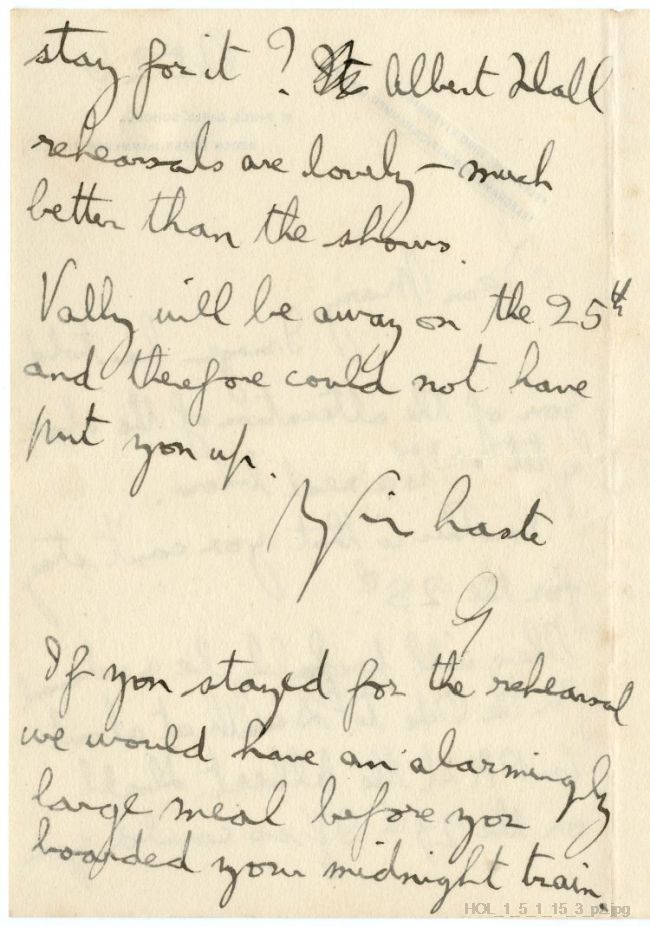 stay for it? Albert Hall
rehearsals are lovely – much
better than the shows.
Vally will be away on the 25th
and therefore could not have
put you up.
in haste
G
If you stayed for the rehearsal
we would have an alarmingly
large meal before you
boarded your midnight train.
HOL_1_5_1_15_3_p2.jpg